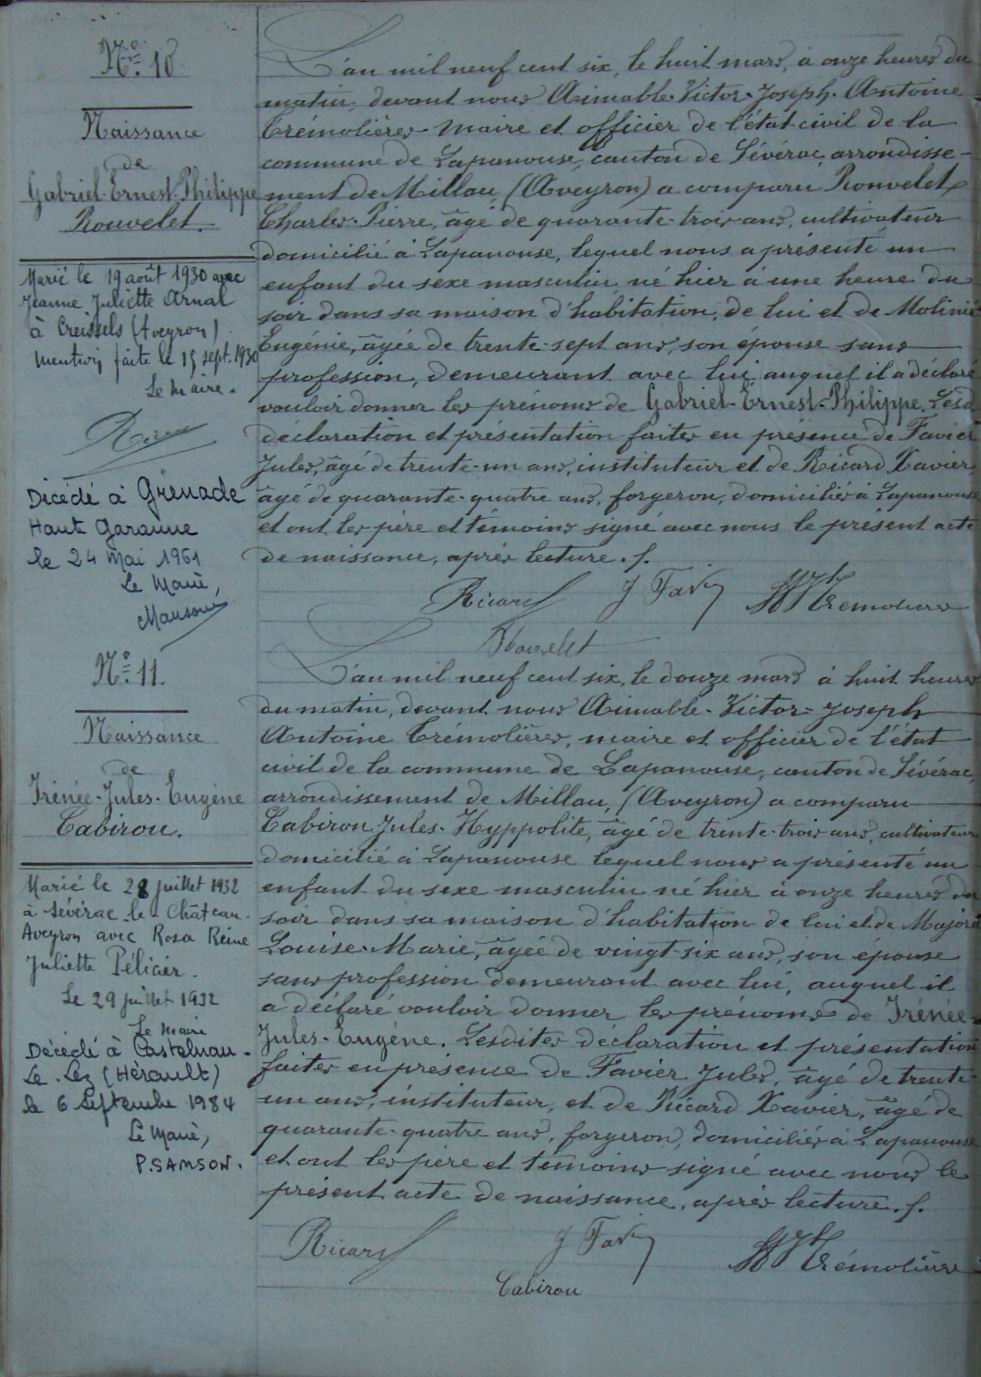 N° 10
Naissance
de
Gabriel-Ernest-Philippe
Rouvelet.
Marié le 19 août 1930 avec
Jeanne Juliette Arnal
à Creissels (Aveyron)
Mention faite le 15 sept. 1930
Le Maire.
Décédé à Grenade
Haut Garonne
le 24 Mai 1961
Le Maire,
L'an mil neuf cent six, le huit mars, à onze heures du
matin, devant nous Aimable-Victor-Joseph-Antoine
Trémolières maire et officier de l'état civil de la
commune de Lapanouse, canton de Sévérac, arrondisse-
ment de Millau, (Aveyron) a comparu Rouvelet
Charles-Pierre, âgé de quarante-trois ans, cultivateur
domicilié à Lapanouse, lequel nous a présenté un
enfant du sexe masculin, né hier à une heure du
soir dans sa maison d'habitation, de lui et de Molinié
Eugénie, âgée de trente-sept ans, son épouse sans
profession, demeurant avec lui, auquel il a déclaré
vouloir donner les prénoms de Gabriel-Ernest-Philippe. Lesd.
déclaration et présentation faites en présence de Favier
Jules, âgé de trente-un ans, instituteur et de Ricard Xavier,
âgé de quarante-quatre ans, forgeron, domiciliés à Lapanouse
et ont les père et témoins signé avec nous le présent acte
de naissance, après lecture.
Ricard J Favier Trémolières
Rouvelet
N° 11.
Naissance
de
Irénée-Jules-Eugène
Cabirou.
Marié le 28 juillet 1932
à Sévérac le Château
Aveyron avec Rosa Reine
Juliette Pélicier.
Le 29 juillet 1932
Le Maire
Décédé à Castelnau-
Le-Lez (Hérault)
le 6 Septembre 1984
Le Maire,
P. SAMSON.
L'an mil neuf cent six, le douze mars à huit heures
du matin, devant nous Aimable-Victor-Joseph
Antoine Trémolières, maire et officier de l'état
civil de la commune de Lapanouse, canton de Sévérac,
arrondissement de Millau, (Aveyron) a comparu
Cabirou Jules-Hyppolite, âgé de trente-trois ans, cultivateur
domicilié à Lapanouse lequel nous a présenté un
enfant du sexe masculin né hier à onze heures du
soir dans sa maison d'habitation de lui et de Majorel
Louise-Marie, âgée de vingt-six ans, son épouse
sans profession demeurant avec lui, auquel il
a déclaré vouloir donner les prénoms de Irénée-
Jules-Eugène. Lesdites déclaration et présentation
faites en présence de Favier Jules, âgé de trente-
un ans, instituteur, et de Ricard Xavier, âgé de
quarante-quatre ans, forgeron, domiciliés à Lapanouse
et ont les père et témoins signé avec nous le
présent acte de naissance, après lecture.
Ricard J Favier Trémolières
Cabirou